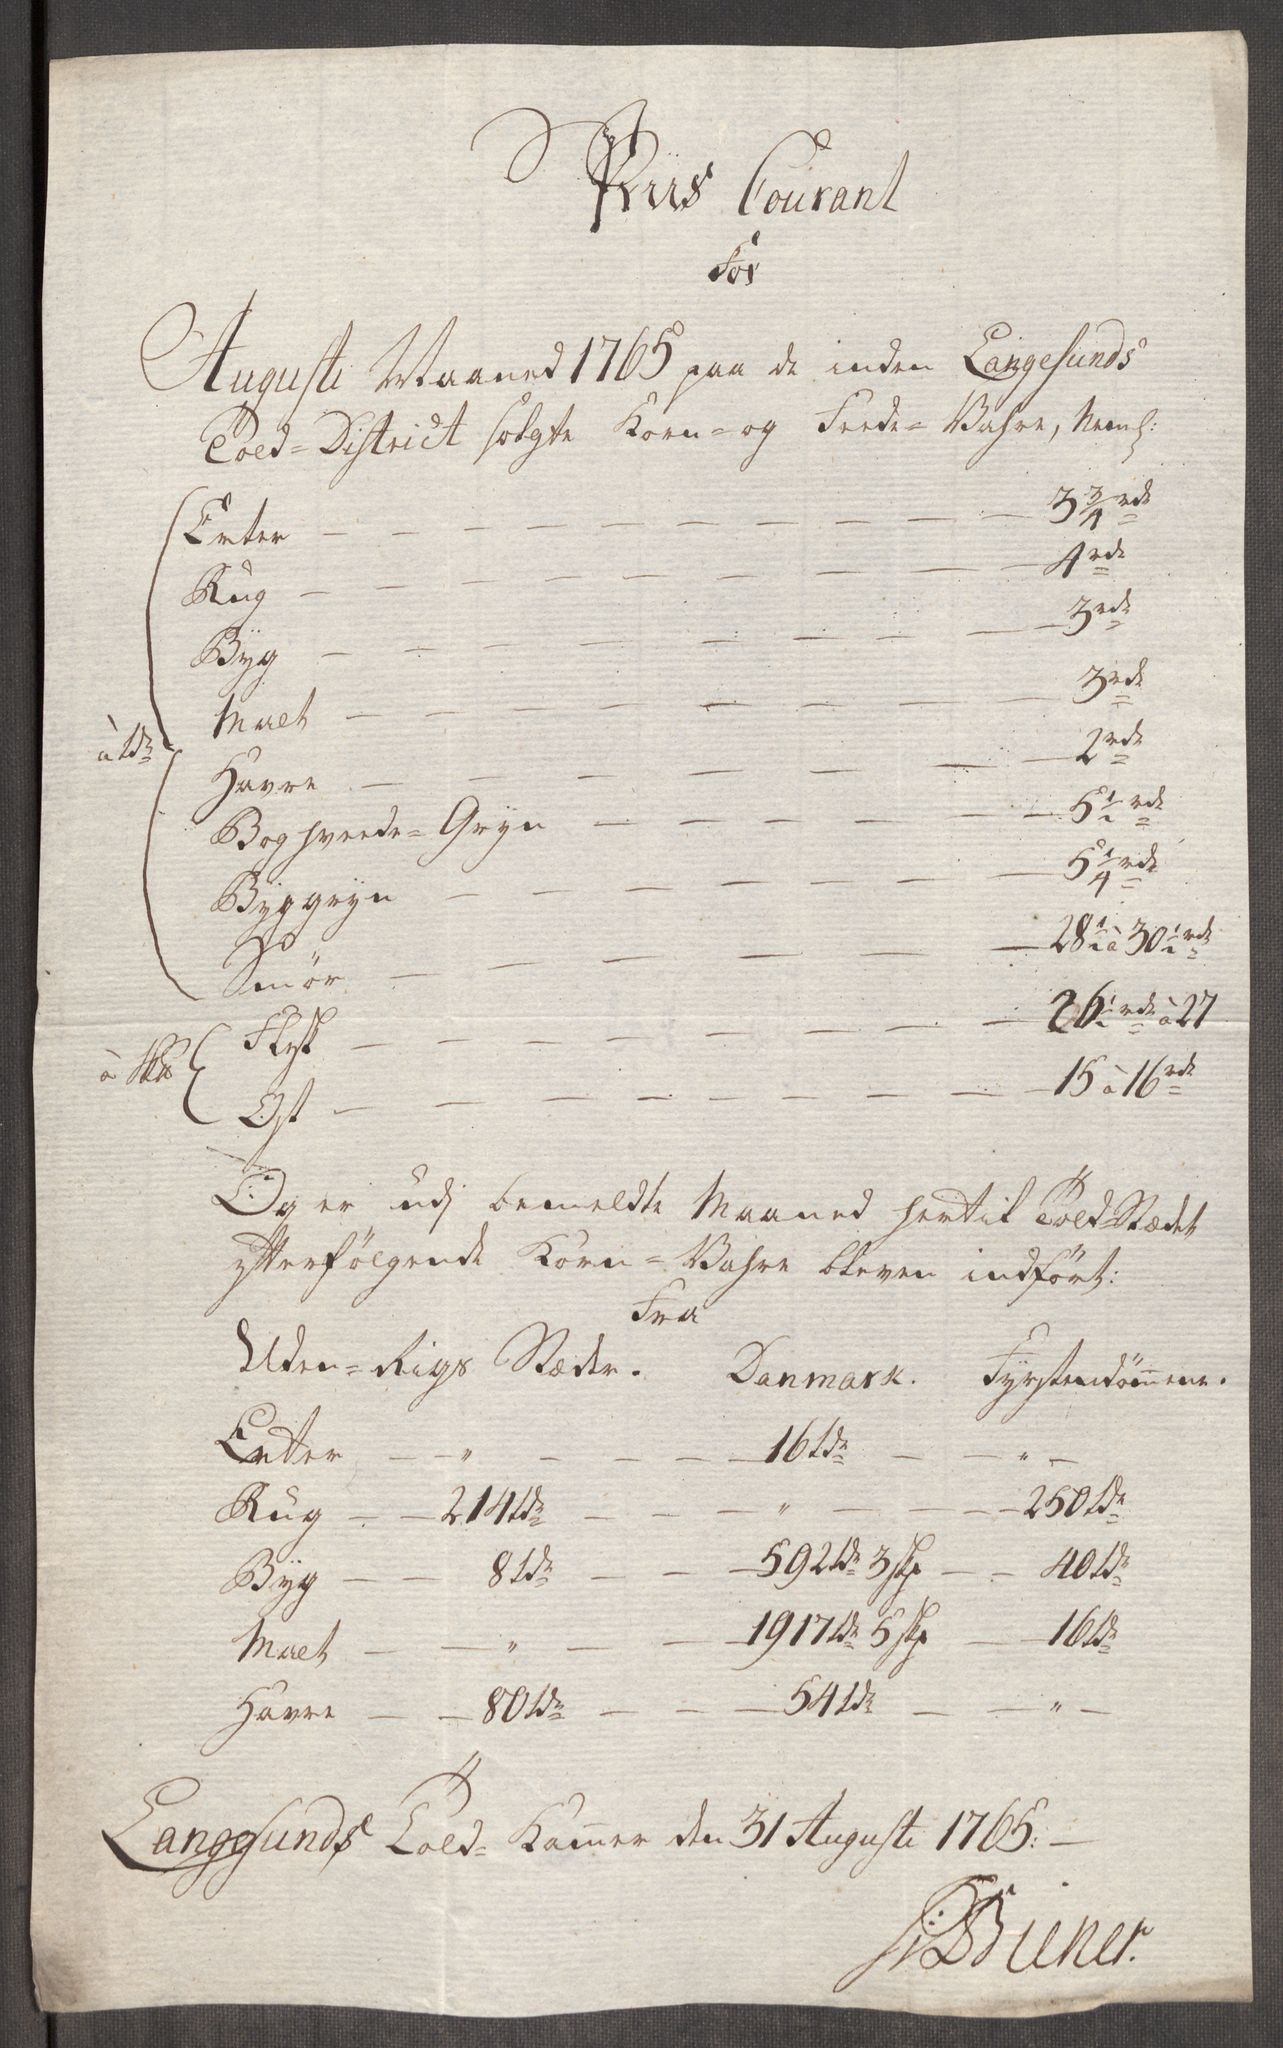 Priis Courant
for
Augusti Maaned 1765 paa de inden Langesunds
Told=District solgte Korn- og Feede=Vahre, Neml:
Erter — 3 3/4 rdr
Rug — 4 rdr
Byg — 3 rdr
Malt — 3 rdr
à tdr
Havre — 2 rdr
Boghveede=Gryn — 5 1/2 rdr
Byggryn — 5 1/4 rdr
Smør — 28 1/2 à 30 1/2 rdr
Flesk — 26 1/2 rdr à 27
à Sk℔
Ost — 15 à 16 rdr
Og er udj bemeldte Maaned hertil Told=Stædet
efterfølgende Korn=Vahre bleven indført:
Fra
Uden=Rigs Stæder. Danmark. Fyrstendømene.
Erter — " — 16 tdr — " —
Rug — 214 tdr — " — 250 tdr
Byg — 8 tdr — 592 tdr 3 skp — 40 tdr
Malt — " — 1917 tdr 5 skp — 16 tdr
Havre — 80 tdr — 54 tdr — " —
Langesunds Told=Kamer den 31 Augusti 1765. —